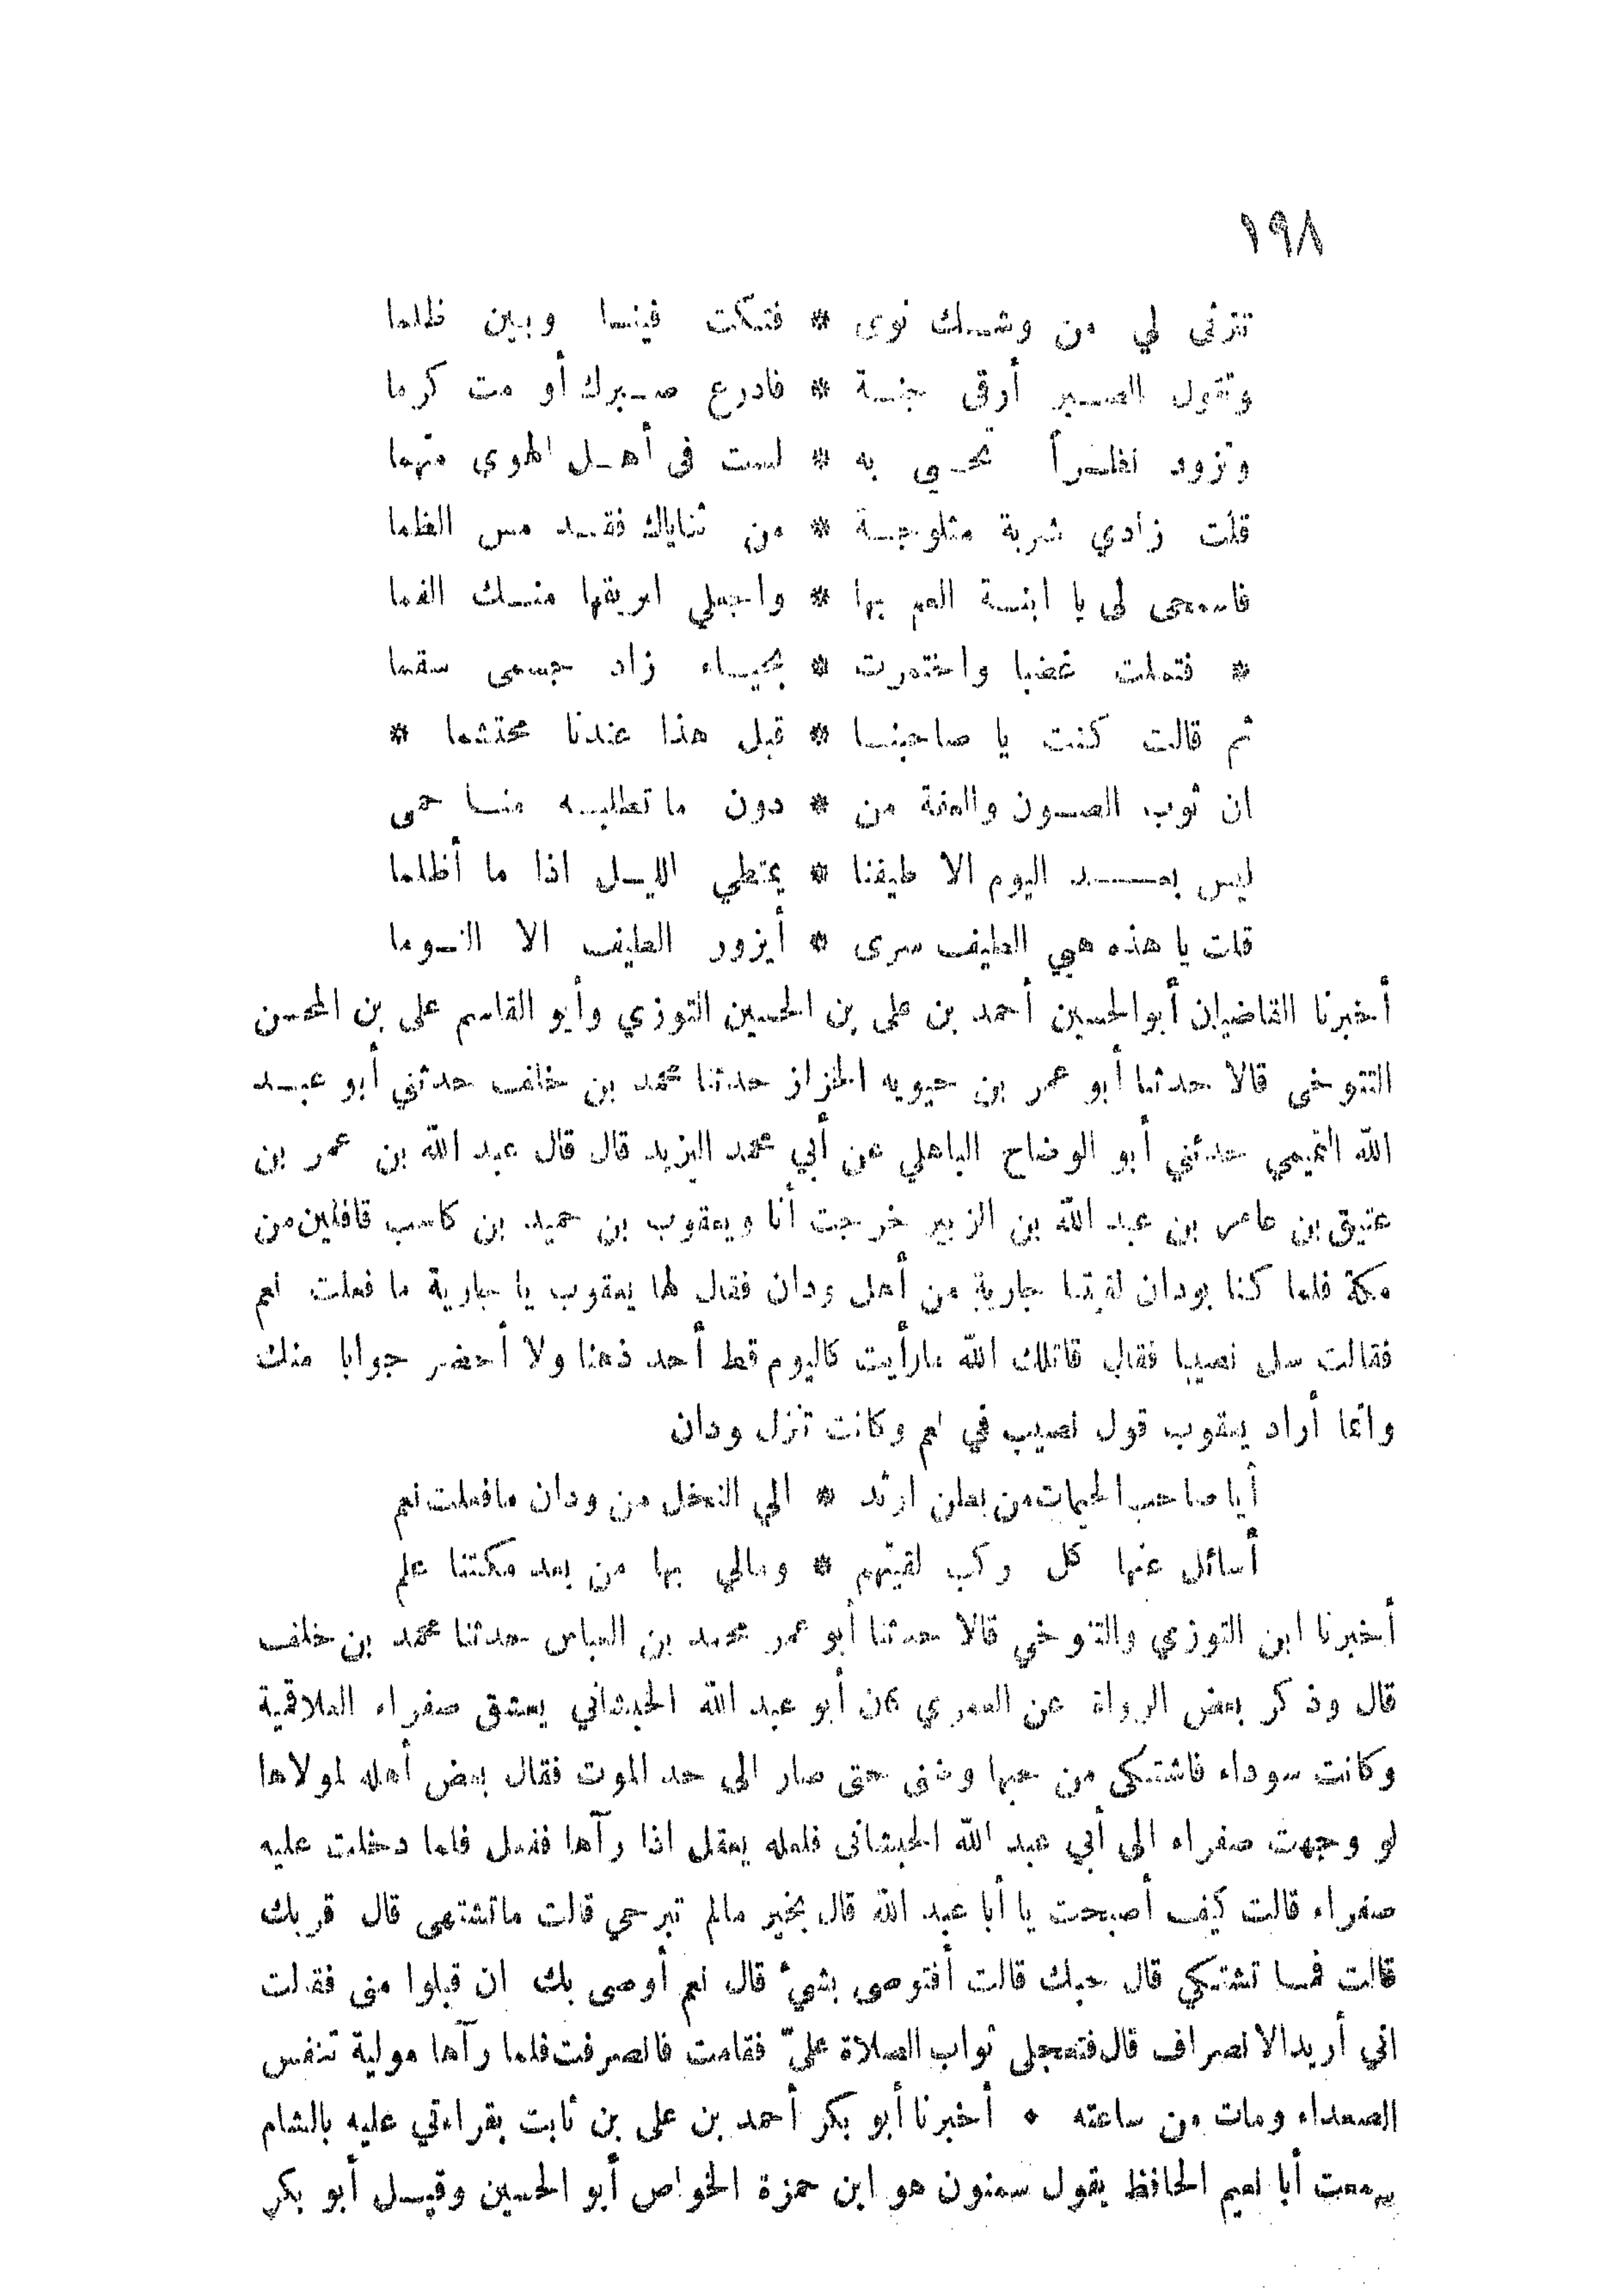 ١٩٨
ترثى لي من وشك نوى * فتكت فينا وبين ظلما
وتقول الصبر أوقى جنة * فادرع صبرك أو مت كرما
وتزود نظراً تحيي به * لست فى أهل الهوى متهما
قلت زادي شربة مثلوجة * من ثناياك فقد مس الظما
فاسمحى لى يا ابنة العم بها * واجعلي ابريقها منك الفما
* فتملت غضبا واختمرت * بحياء زاد جسمى سقما
ثم قالت كنت يا صاحبنا * قبل هذا عندنا محتشما *
ان ثوب الصون والعفة من * دون ما تطلبه منا حمى
ليس بعد اليوم الا طيفنا * يمتطي الليل اذا ما أظلما
قلت يا هذه هبي الطيف سرى * أيزور الطيف الا النوما
أخبرنا القاضيان أبوالحسين أحمد بن على بن الحسين التوزي وأبو القاسم على بن المحسن
التنوخى قالا حدثنا أبو عمر بن حيويه الخزاز حدثنا محمد بن خلف حدثني أبو عبد
الله التميمي حدثني أبو الوضاح الباهلي عن أبي محمد اليزيد قال قال عبد الله بن عمر بن
عتيق بن عامر بن عبد الله بن الزبير خرجت أنا ويعقوب بن حميد بن كاسب قافلين من
مكة فلما كنا بودان لقيتنا جارية من أهل ودان فقال لها يعقوب يا جارية ما فعلت نعم
فقالت سل نصيبا فقال قاتلك الله مارأيت كاليوم قط أحد ذهنا ولا أحضر جوابا منك
وانما أراد يعقوب قول نصيب في نعم وكانت تنزل ودان
أيا صاحب الخيمات من بطن ارثد * الي النخل من ودان مافعلت نعم
أسائل عنها كل ركب لقيتهم * ومالي بها من بعد مكتنا علم
أخبرنا ابن التوزي والتنوخي قالا حدثنا أبو عمر محمد بن العباس حدثنا محمد بن خلف
قال وذكر بعض الرواة عن العمري كان أبو عبد الله الحبشاني يعشق صفراء العلاقية
وكانت سوداء فاشتكى من حبها وضنى حتى صار الى حد الموت فقال بعض أهله لمولاها
لو وجهت صفراء الى أبي عبد الله الحبشانى فلعله يعقل اذا رآها ففعل فلما دخلت عليه
صفراء قالت كيف أصبحت يا أبا عبد الله قال بخير مالم تبرحي قالت ماتشتهى قال قربك
قالت فما تشتكي قال حبك قالت أفتوصى بشيء قال نعم أوصى بك ان قبلوا منى فقالت
اني أريد الانصراف قال فتعجلى ثواب الصلاة عليّ فقامت فانصرفت فلما رآها مولية تنفس
الصعداء ومات من ساعته • أخبرنا أبو بكر أحمد بن على بن ثابت بقراءتي عليه بالشام
سمعت أبا نعيم الحافظ يقول سمنون هو ابن حمزة الخواص أبو الحسين وقيل أبو بكر